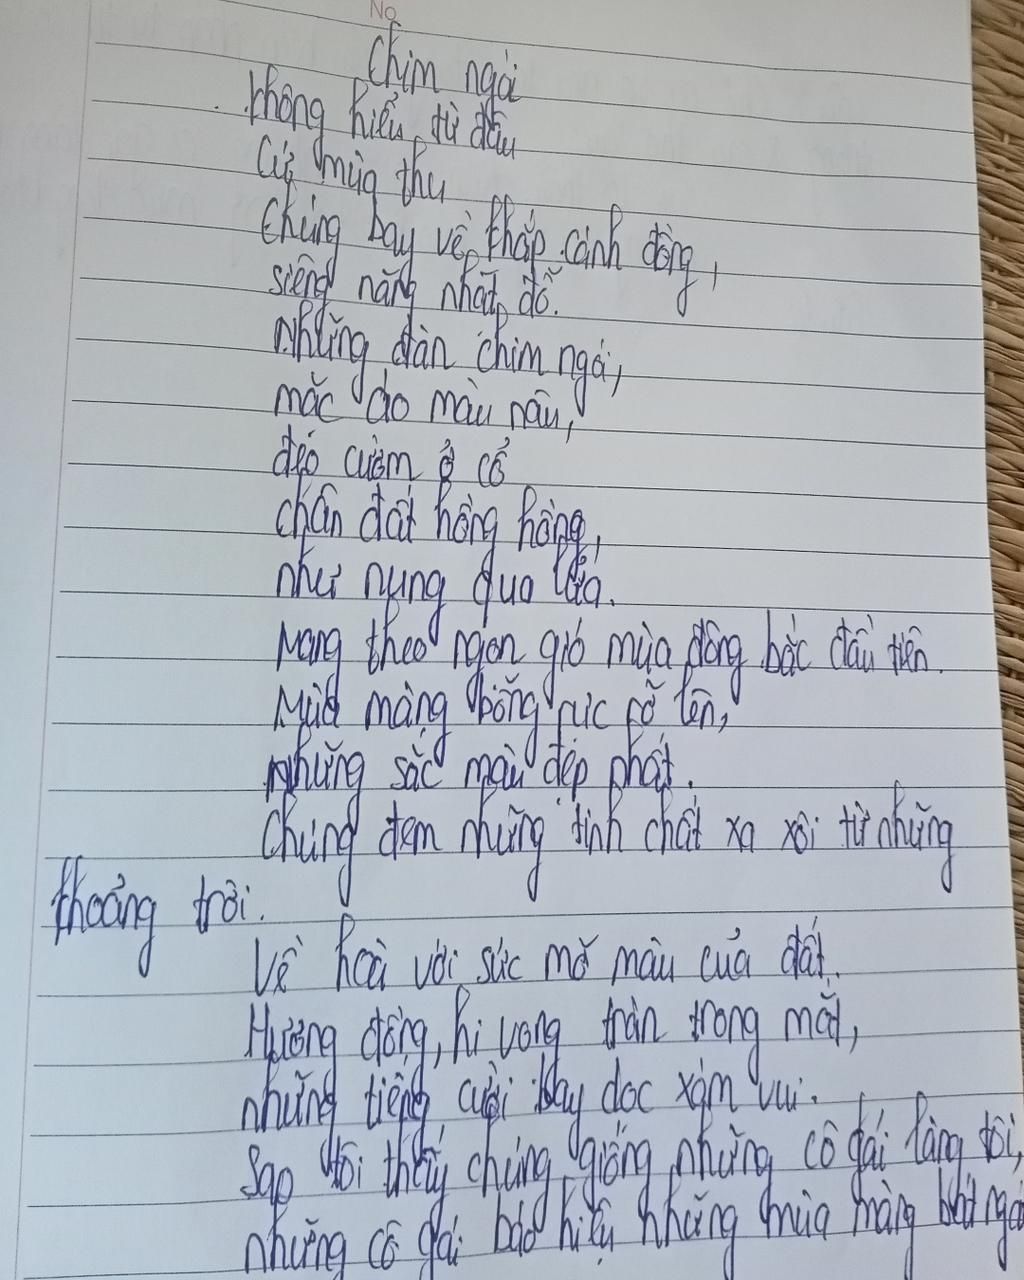 No
Chim ngói
Không hiểu từ đâu
Cứ mùa thu
Chúng bay về khắp cánh đồng,
siêng năng nhặt đỗ.
Những đàn chim ngói,
mặc áo màu nâu,
đeo cườm ở cổ
chân đất hồng hồng,
như nung qua lửa.
Mang theo ngọn gió mùa đông bắc đầu tiên.
Mùa màng bỗng rực rỡ lên,
những sắc màu đẹp nhất.
Chúng đem những tinh chất xa xôi từ những
khoảng trời.
Về hoà với sức mỡ màu của đất.
Hương đồng, hi vọng tràn trong mắt,
những tiếng cười bay dọc xóm vui.
Sao tôi thấy chúng giống những cô gái làng tôi,
những cô gái báo hiệu những mùa màng